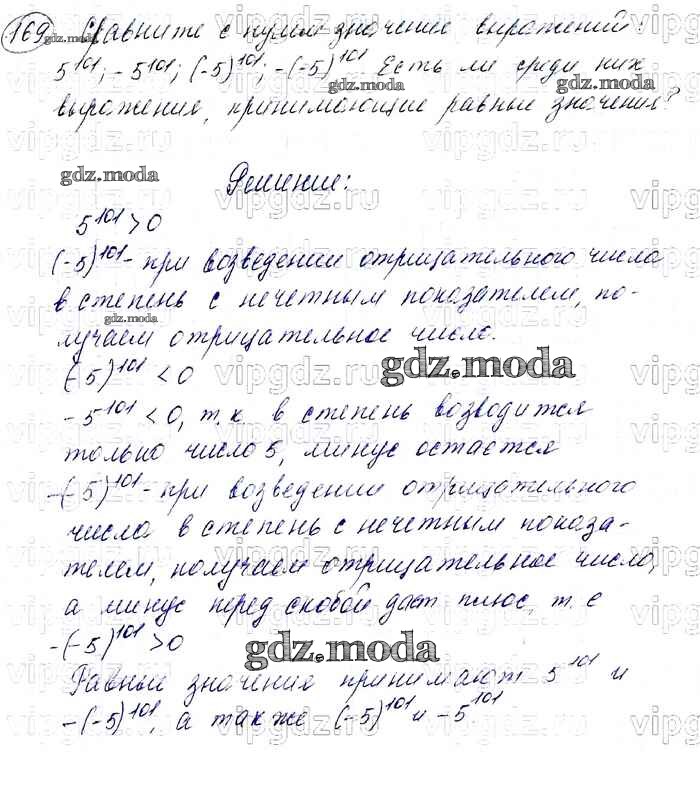 169 Сравните с нулём значение выражений:
5^101; -5^101; (-5)^101; -(-5)^101 Есть ли среди них
выражения, принимающие равные значения?
gdz.moda
Решение:
5^101 > 0
(-5)^101 - при возведении отрицательного числа
в степень с нечетным показателем, по-
лучаем отрицательное число.
gdz.moda
(-5)^101 < 0
-5^101 < 0, т.к. в степень возводится
только число 5, минус остаётся
-(-5)^101 - при возведении отрицательного
числа в степень с нечетным показа-
телем, получаем отрицательное число,
а минус перед скобой даст плюс, т.е
-(-5)^101 > 0
gdz.moda
Равные значения принимают 5^101 и
-(-5)^101, а также (-5)^101 и -5^101.
gdz.moda
vipgdz.ru